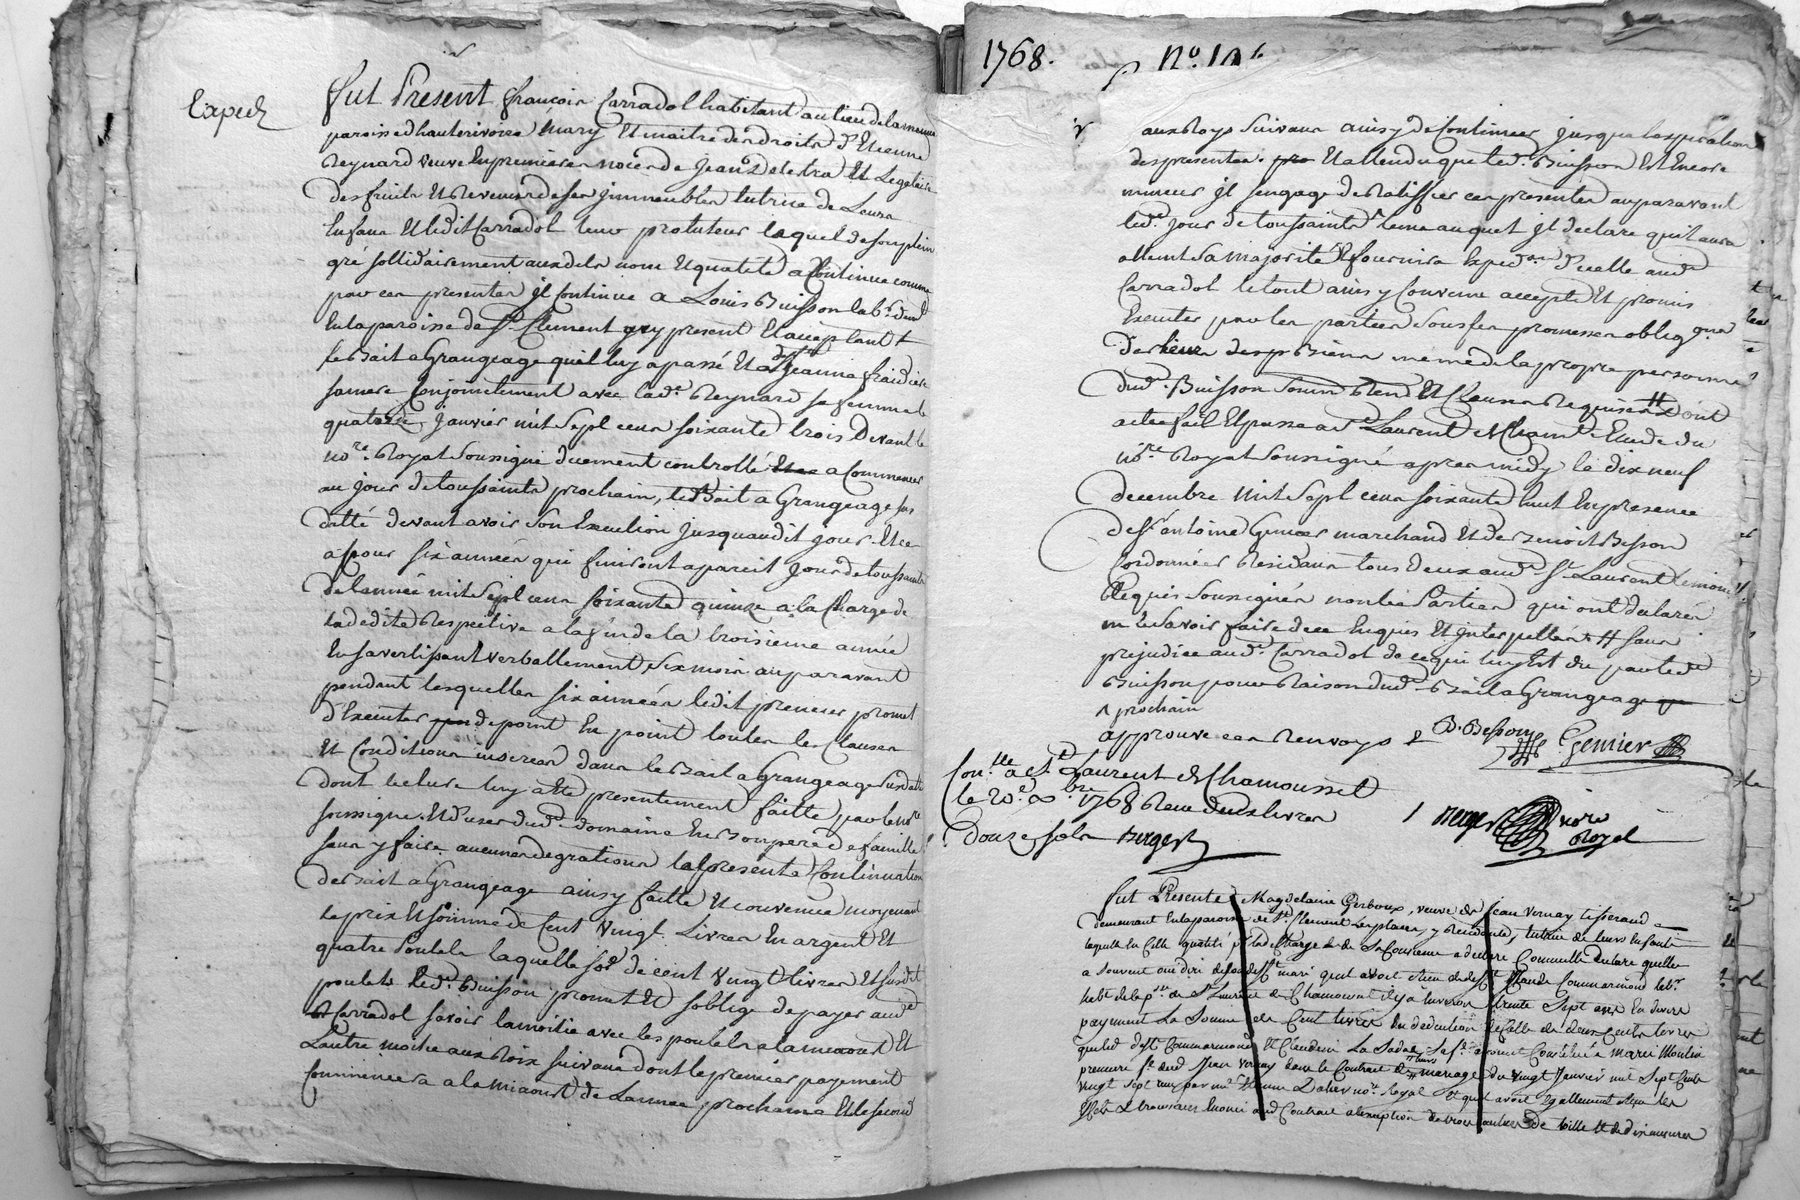 Exped
fut Present françois Carradol habitant au lieu de la
paroisse d'hauterivoire mary Et maitre des droits d'Etienne
Reynard veuve En premieres noces de Jean Delestra Et Legataire
des fruits Et Revenus de ses immeubles tutrice de Leurs
Enfans Et ledit Carradol leur protuteur lequel de son plein
gré sollidairement auxdits nom Et qualité a Continué comme
par ces presentes il Continue a Louis Buisson lab.r dem.t
En la paroisse de S.t Clement icy present Et acceptant
le Bail a Grangeage qu'il luy a passé Et a Jeanne
sa mere Conjointement avec lad.e Reynard sa femme le
quatorze Janvier mil Sept cens soixante trois Devant le
no.re Royal Soussigné duement controllé a Commencer
au jour de toussaints prochain, led. Bail a Grangeage sus
datté devant avoir Son Execution jusquaudit jour Et ce
pour six années qui finiront a pareil jour de toussaints
de l'année mil Sept cens soixante quinze a la Charge de
la dedite Respective a la fin de la troisieme année
En s'avertissant verballement six mois auparavant
pendant lesquelles six années ledit preneur promet
d'Executer de point En point toutes les Clauses
Et Conditions inserées dans le Bail a Grangeage susdatté
dont lecture luy a Eté presentement faitte, par le no.re
soussigné. Et d'user dud. domaine En Bon pere de famille
sans y faire aucunes degrations la presente Continuation
de Bail a Grangeage ainsy faitte Et convenue moyenant
le prix Et somme de Cent Vingt Livres En argent Et
quatre Poulets laquelle so.e de cent Vingt livres Et susdits
poulets led. Buisson promet Et s'oblige de payer aud.
Carradol savoir la moitié avec les poulets a la miaoust Et
L'autre moitié aux Rois suivans dont le premier payement
Commencera a la miaoust de L'année prochaine Et le second
1768. N.o
aux Roys Suivans ainsy de Continuer jusqua l'expiration
des presentes. Et attendu que led. Buisson Est Encore
mineur il s'engage de Ratiffier ces presentes auparavant
led. jour de toussaints auquel il declare qu'il aura
atteint Sa majorité Et fournira Exped.on d'icelle aud.
Carradol le tout ainsy Convenu accepté Et promis
Executer par les parties Sous les promesses oblig.ons
des Biens meme de la propre personne
dud. Buisson Et Clauses Requises H Dont
acte fait Et passé a S.t Laurent de Cham.t Etude du
no.re Royal Soussigné apres midy le dix neuf
decembre Mil Sept cens soixante huit En presence
de S.r antoine Genier marchand Et de Benoit Besson
Cordonnier Residans tous deux aud. S.t Laurent temoins
Requis Soussignés non les Parties qui ont declaré
ne le Savoir faire de ce Enquis Et interpellés H Sans
prejudice aud. Carradol de ce qui luy Est du par led.
Buisson pour Raison dud. Bail a Grangeage
prochain
approuvé ces Renvoys B. Besson Genier
Con.lle a S.t Laurent de Chamousset
le 20.e x.bre 1768 Reçu deux livres
Douze sols Berger
Berger no.re Royal
fut Presente Magdelaine Gerboux, veuve de Jean Vernay tisserand
demeurant En la paroisse de S.t Clement les places y Residente, tutrice de leurs Enfants
laquelle En Cette qualité p.r la decharge de Sa Conscience a declaré Comme Elle declare quelle
a Souvent oui dire mari quil avoit Claude Commarmond lab.r
hab.t de la p.sse de S.t Laurent de Chamousset il y a Environ trente Sept ans En divers
payement La Somme de Cent livres En deduction de Celle de deux Cents livres
que led. deff.t Commarmond Et Claudine La Sa f.e avoient Constitué a marie Moulin
premiere f.e dud. Jean Vernay dans le Contrat de mariage du vingt Janvier mil Sept Cents
vingt Sept reçu par M.e no.re Royal Et quil avoit Egallement
aud Contrat a l'exception de trois aulnes de toille Et de dix mesures